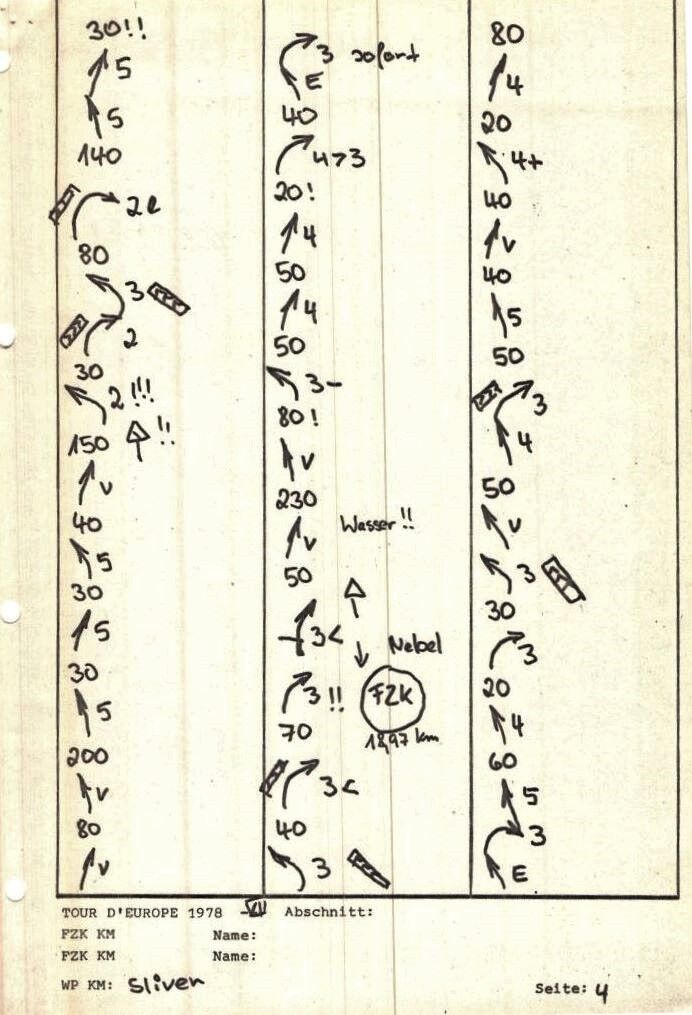 30!!
5
5
140
2e
80
3
2
30
2!!!
150 !!
v
40
5
30
5
30
5
200
v
80
v
3 sofort
E
40
4>3
20!
4
50
4
50
3-
80!
v
230
Wasser!!
v
50
3<
Nebel
3!!
FZK
70
18,97 km
3<
40
3
80
4
20
4+
40
v
40
5
50
3
4
50
v
3
30
3
20
4
60
5
3
E
TOUR D'EUROPE 1978 Abschnitt:
FZK KM Name:
FZK KM Name:
WP KM: Sliven
Seite: 4